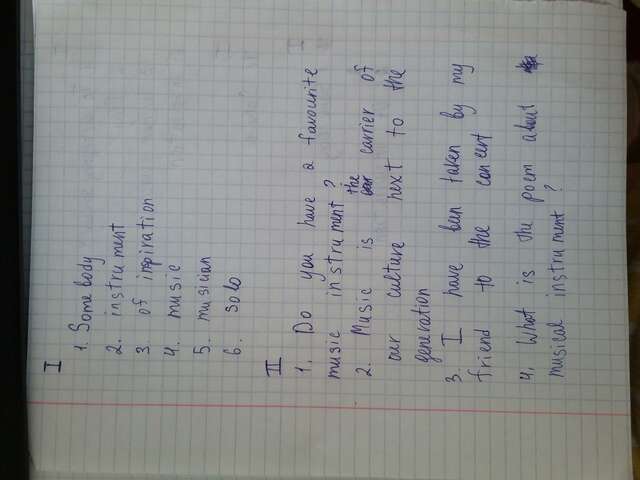 I
1. Some body
2. instrument
3. of inspiration
4. music
5. musician
6. solo
II
1. Do you have a favourite
music instrument?
2. Music is the carrier of
our culture next to the
generation
3. I have been taken by my
friend to the concert
4. What is the poem about
musical instrument?